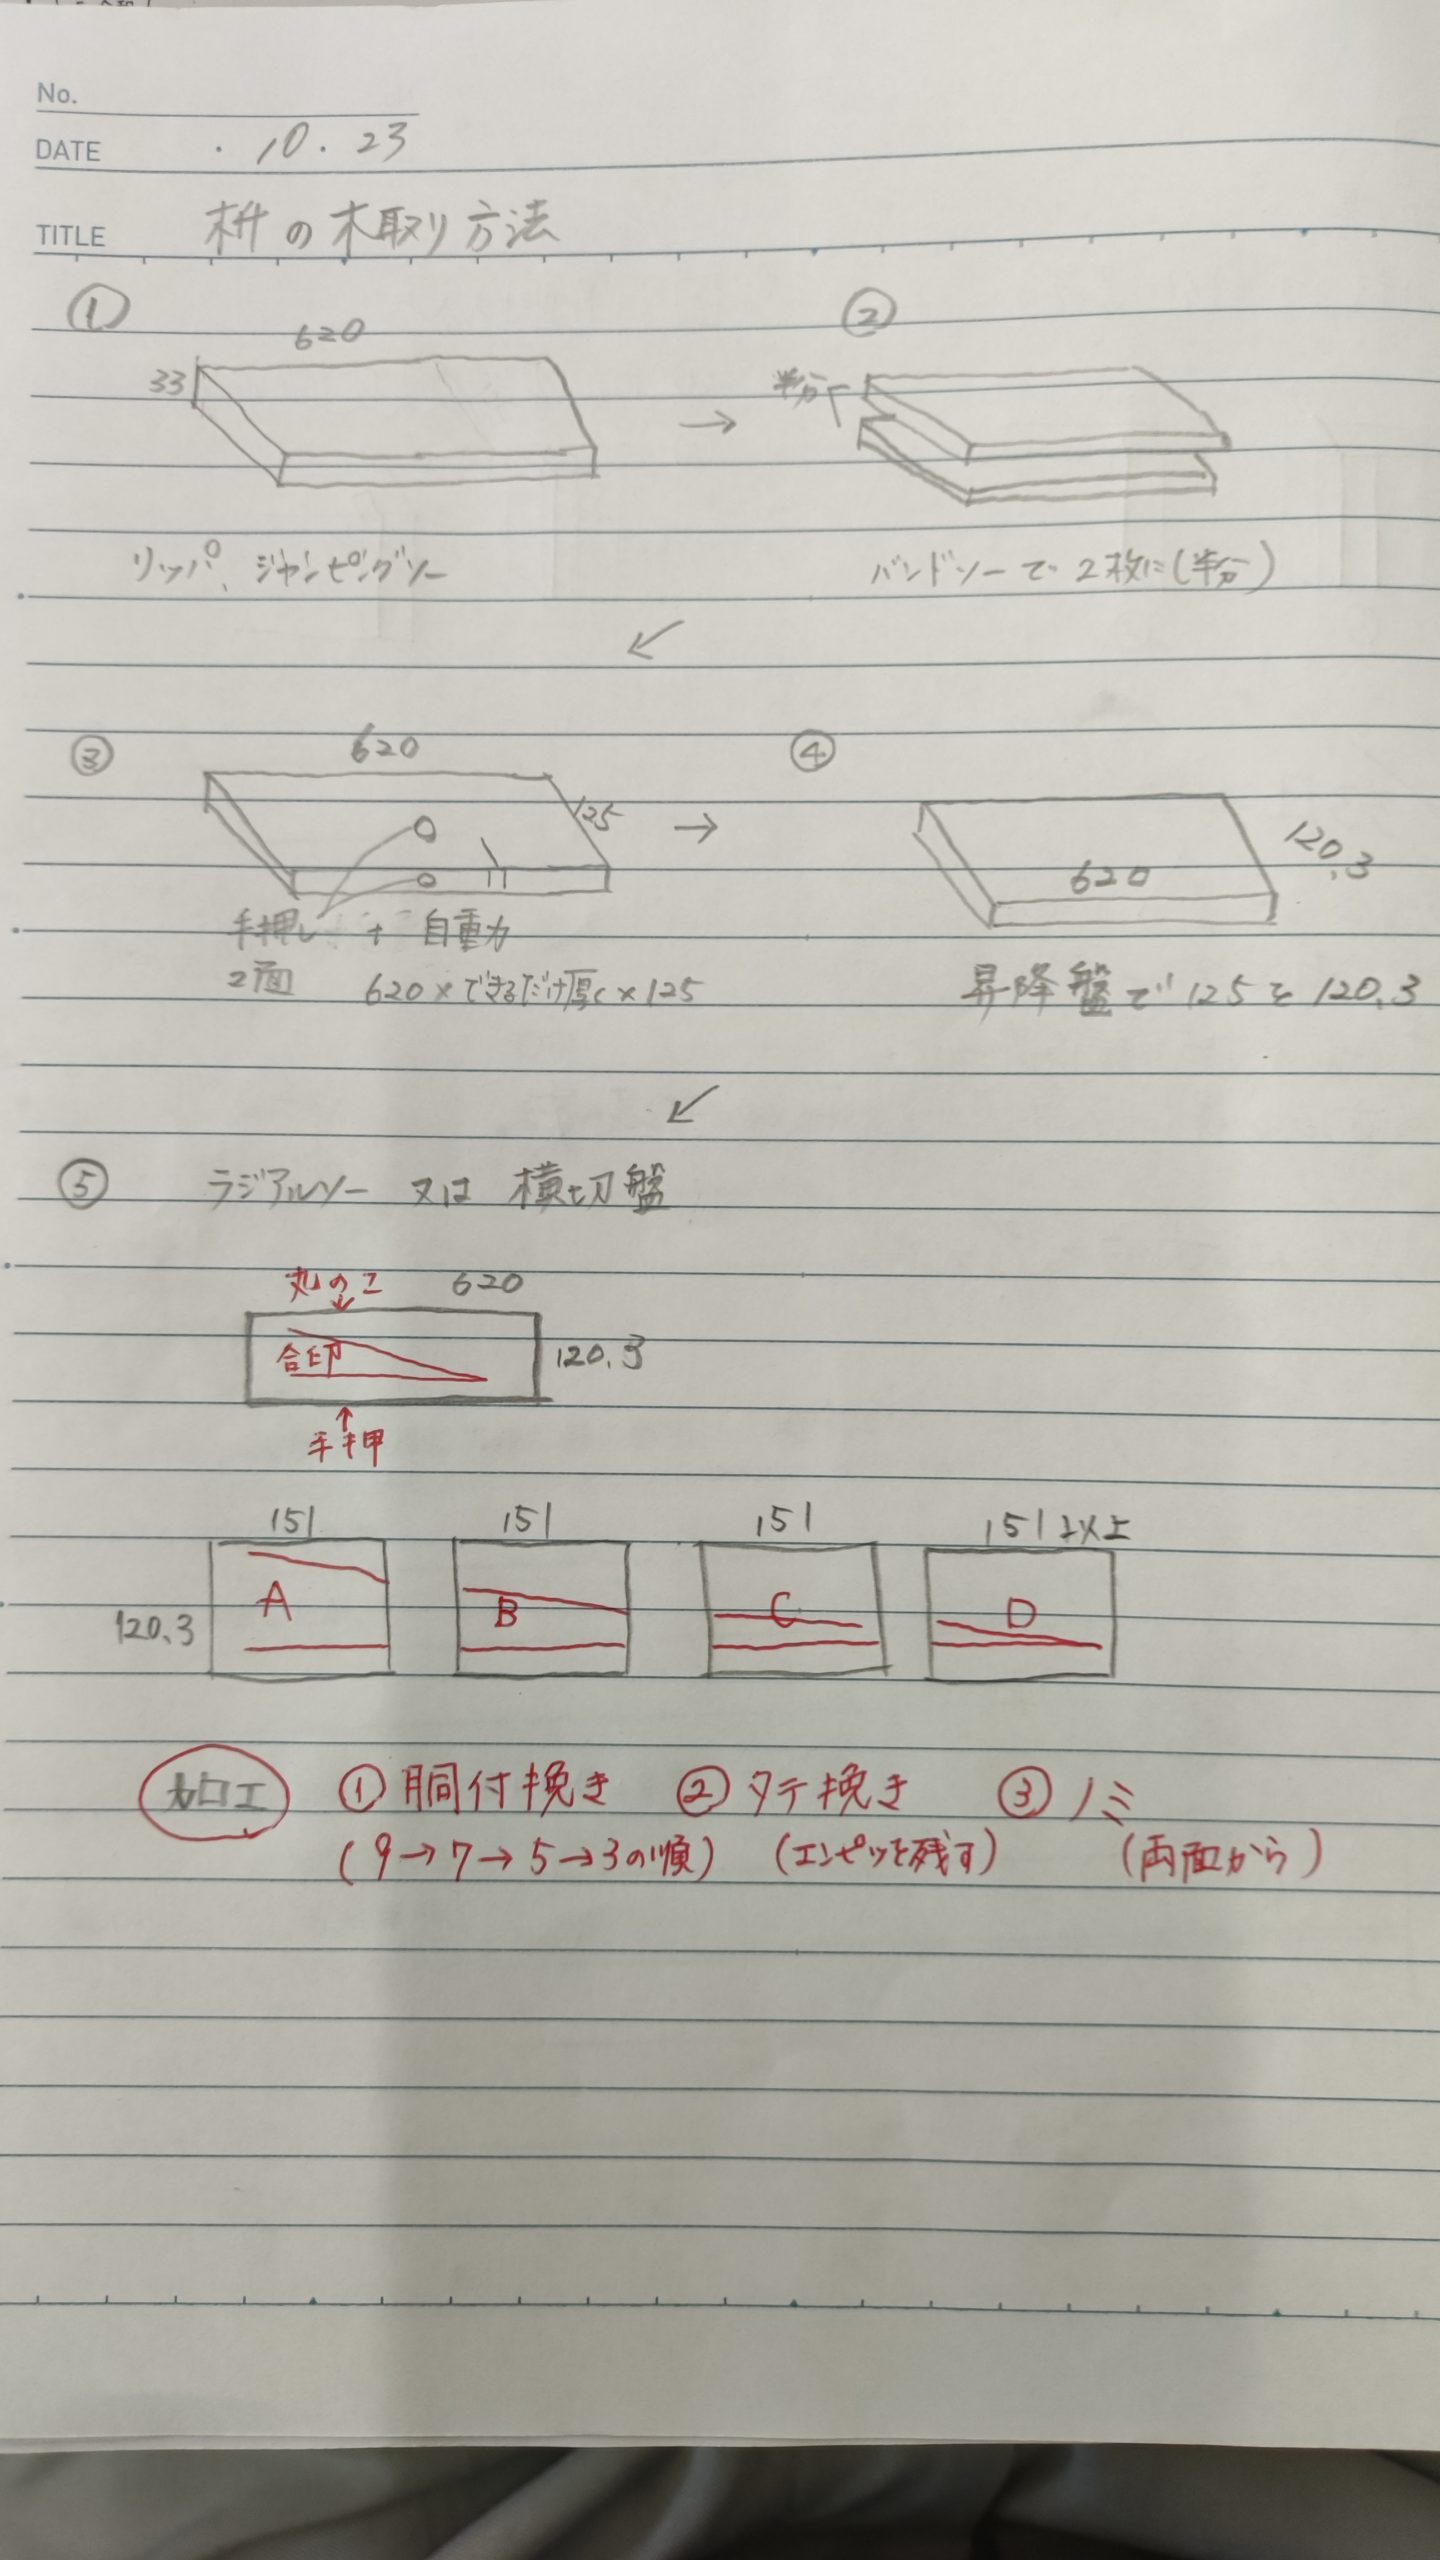 No.
DATE ・10・23
TITLE 枡の木取り方法
① ②
620
33 半分
リッパ、ジャンピングソー バンドソーで2枚に(半分)
③ ④
620
125 120.3
620
手押し + 自動
2面 620×できるだけ厚く×125 昇降盤で125を120.3
⑤ ラジアルソー 又は 横切盤
丸のこ 620
合印 120.3
手押
151 151 151 151以上
A B C D
120.3
加工 ①胴付挽き ②タテ挽き ③ノミ
(9→7→5→3の順) (エンピツを残す) (両面から)